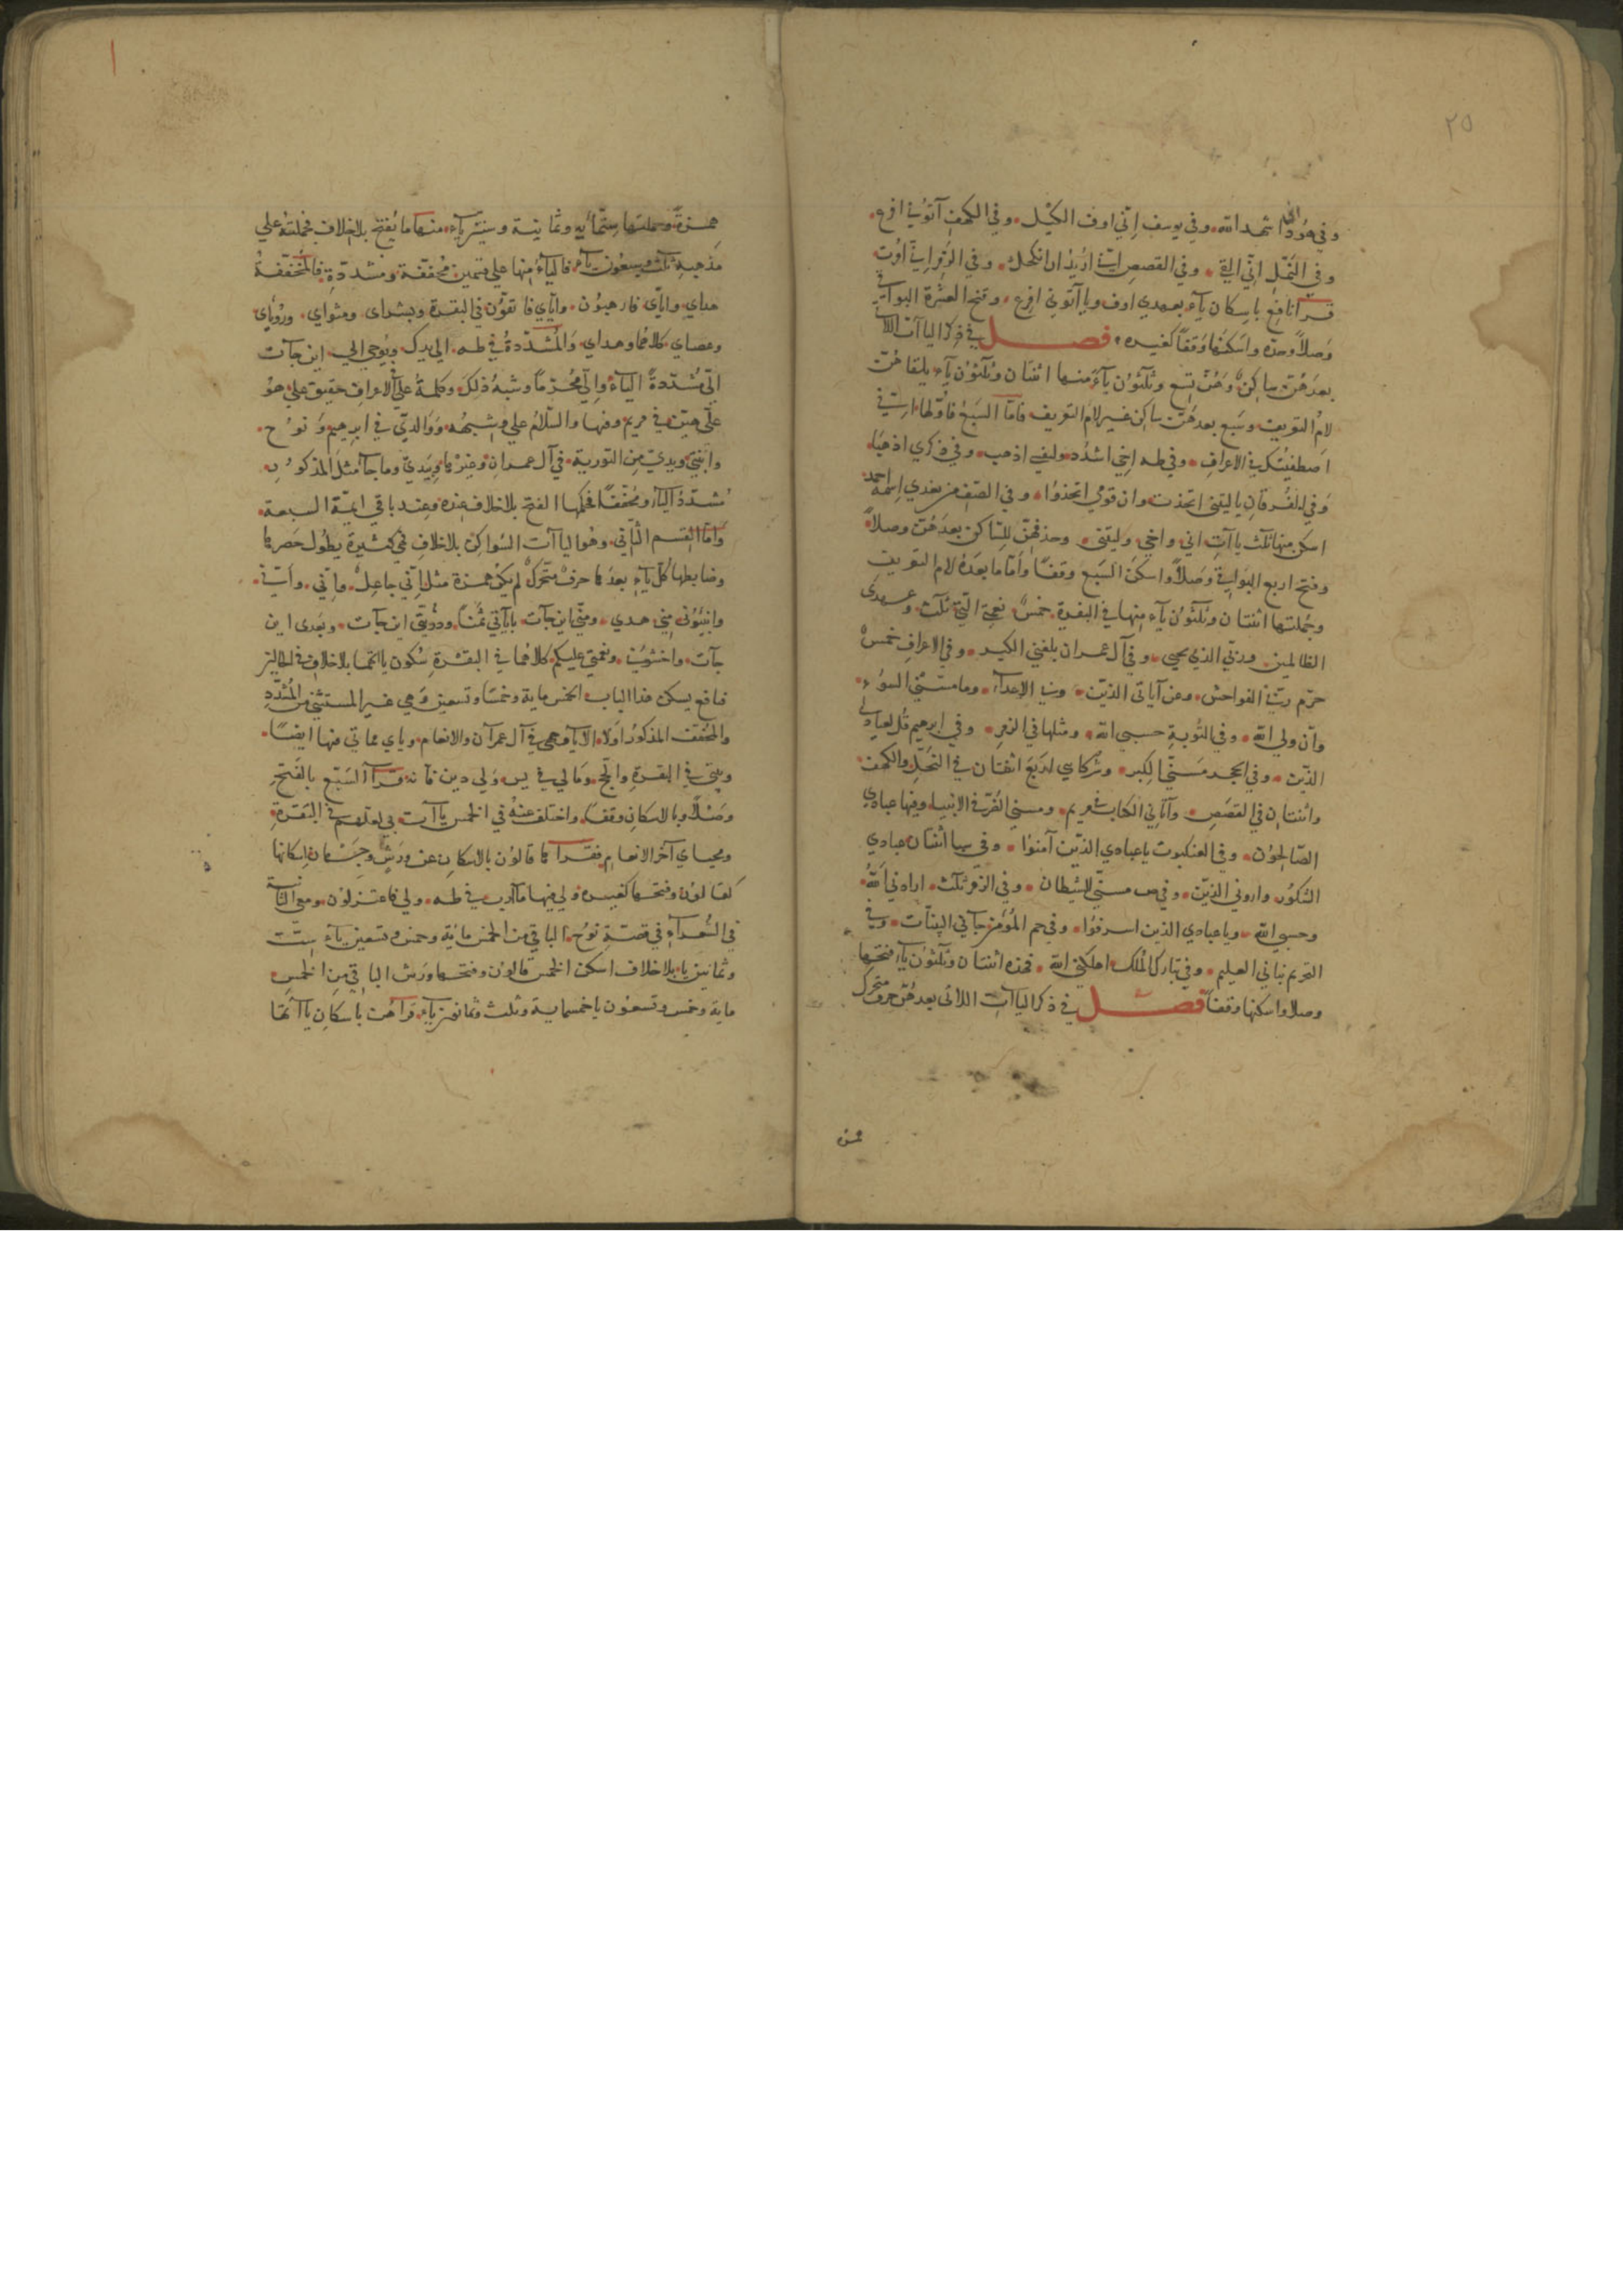 ٢٥
وفي هود اني اشهد الله وفي يوسف اني اوف الكيل وفي الكهف آتوني افرغ
وفي النمل اني القي وفي القصص اني اريد ان انكحك وفي الزمر اني امرت
قرا نافع باسكان ياء بعهدي اوف ويا آتوني افرغ وفتح العشرة البواقي
وصلا وحده واسكنها وقفا كغيره فصل في ذكر الياآت اللاتي
بعدهن ساكن وهن تسع وثلثون ياء منها اثنتان وثلثون ياء يلقاهن
لام التعريف وسبع بعدهن ساكن غير لام التعريف فاما السبع فاولها اني
اصطفيتك في الاعراف وفي طه اخي اشدد ولنفسي اذهب وفي ذكري اذهبا
وفي الفرقان يا ليتني اتخذت وان قومي اتخذوا وفي الصف من بعدي اسمه احمد
اسكن منها ثلث ياآت اني واخي وليتني وحذفهن للساكن بعدهن وصلا
وفتح اربع البواقي وصلا واسكن السبع وقفا واما ما بعده لام التعريف
وجملتها اثنتان وثلثون ياء منها في البقرة خمس نعمتي التي ثلث وعهدي
الظالمين وربي الذي يحيي وفي آل عمران بلغني الكبر وفي الاعراف خمس
حرم ربي الفواحش وعن آياتي الذين وبي الاعداء وما مسني السوء
وان ولي الله وفي التوبة حسبي الله ومثلها في الزمر وفي ابرهيم قل لعبادي
الذين وفي الحجر مسني الكبر وشركاي اربع اثنتان في النحل والكهف
واثنتان في القصص وآتاني الكتاب في مريم ومسني الضر في الانبيا وفيها عبادي
الصالحون وفي العنكبوت يا عبادي الذين آمنوا وفي سبا اثنتان عبادي
الشكور واروني الذين وفي ص مسني الشيطان وفي الزمر ثلث ارادني الله
وحسبي الله ويا عبادي الذين اسرفوا وفي حم المؤمن جآني البينات وفي
التحريم نباني العليم وفي تبارك الملك اهلكني الله فهذه اثنتان وثلثون ياء فتحها
وصلا واسكنها وقفا فصل في ذكر الياآت اللاتي بعدهن حرف متحرك
همزة وجملتها ستمائة وثمانية وستين ياء منها ما يفتح بلا خلاف فجملته على
مذهبه ثلث وسبعون ياء فالياء منها على قسمين مخففة ومشددة فالمخففة
هداي واياي فارهبون واياي فاتقون في البقرة وبشراى ومثواي ورؤياي
وعصاي كلاهما وهداي والمشددة في طه الي يدك ويوحى الي اين جآت
الي مشددة الياء والي محرما وشبه ذلك وكلمة علي الاعراف حقيق علي هو
علي هين في مريم وفيها والسلام علي وشبهه ووالدي في ابرهيم ونوح
وابنتي ويدي من التورية في آل عمران وغيرها وبيدي وما جآ مثل المذكور
مشدد الياء ومخففا فحكمها الفتح بلا خلاف عنده وعند باقي ايمة السبعة
واما القسم الثاني وهو الياآت السواكن بلا خلاف فهي كثيرة يطول حصرها
وضابطها كل ياء بعدها حرف متحرك لم يكن همزة مثل اني جاعل واني واني
وانبئوني مني هدى ومني اين جآت باياتي ثمنا وذريتي اين جآت وبعدى اين
جآت واخشوني ونعمتي عليكم كلاهما في البقرة سكون ياآتها بلا خلاف
فنافع يسكن هذا الباب الخمس ماية وخمسا وتسعين وهي غير المستثنى من المشدد
والمخفف المذكور اولا الا ياء وجهي في آل عمران والانعام وياي مماتي فيها ايضا
وبيتي في البقرة والحج ومالي في يس ولي دين فانه قرا السبع بالفتح
وصلا وبالاسكان وقفا واختلف عنه في الخمس ياآت بي لعلهم في البقرة
ومحياي آخر الانعام فقراها قالون بالاسكان عن ورش وجهان اسكانها
كقالون وفتحها كغيره ولي فيها مآرب في طه ولي فاعتزلون ومعي الثانية
في الشعراء في قصة نوح الباقي من الخمس مائة وخمس وتسعين ياء ست
وثمانين ياء بلا خلاف اسكن الخمس قالون وفتحها ورش الباقي من الخمس
ماية وخمس وتسعون يا خمسماية وثلث وثمانين ياء قراهن باسكان ياآتها
همزة